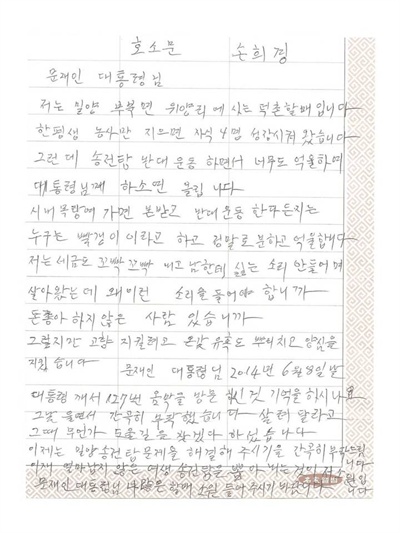 호소문 손희경
문재인 대통령님
저는 밀양 부북면 위양리에 사는 덕촌할매 입니다
한평생 농사만 지으면 자식 4명 성장시켜 왔습니다
그런데 송전탑 반대운동 하면서 너무도 억울하여
대통령님께 하소연 올립니다
시내 목항에 가면 본받고 반대운동 한다든지는
누구는 빨갱이 이라고 하고 정말로 분하고 억울합니다
저는 세금도 꼬빡꼬빡 내고 남한데 싫는 소리 안들어며
살아왔는데 왜 이런 소리을 들어야 합니까
돈좋아 하지않은 사람 있습니까
그렇지만 고향 지킬려고 온갖 유혹도 뿌리치고 양심을
지킸습니다 문재인 대통령님 2014년 6월 8일 날
대통령께서 127번 움막을 방문 하신것 기억을 하시나요
그날 울면서 간곡히 부탁했습니다 살려달라고
그때 무언가 도울길을 찾겠다 하셨습니다
이제는 밀양송전탑문제를 해결해 주시기을 간곡히 부탁드립니다
이제 얼마남지 않은 여생 송전탑을 뽑아 내는것이 저 소원입니다
문재인 대통령님